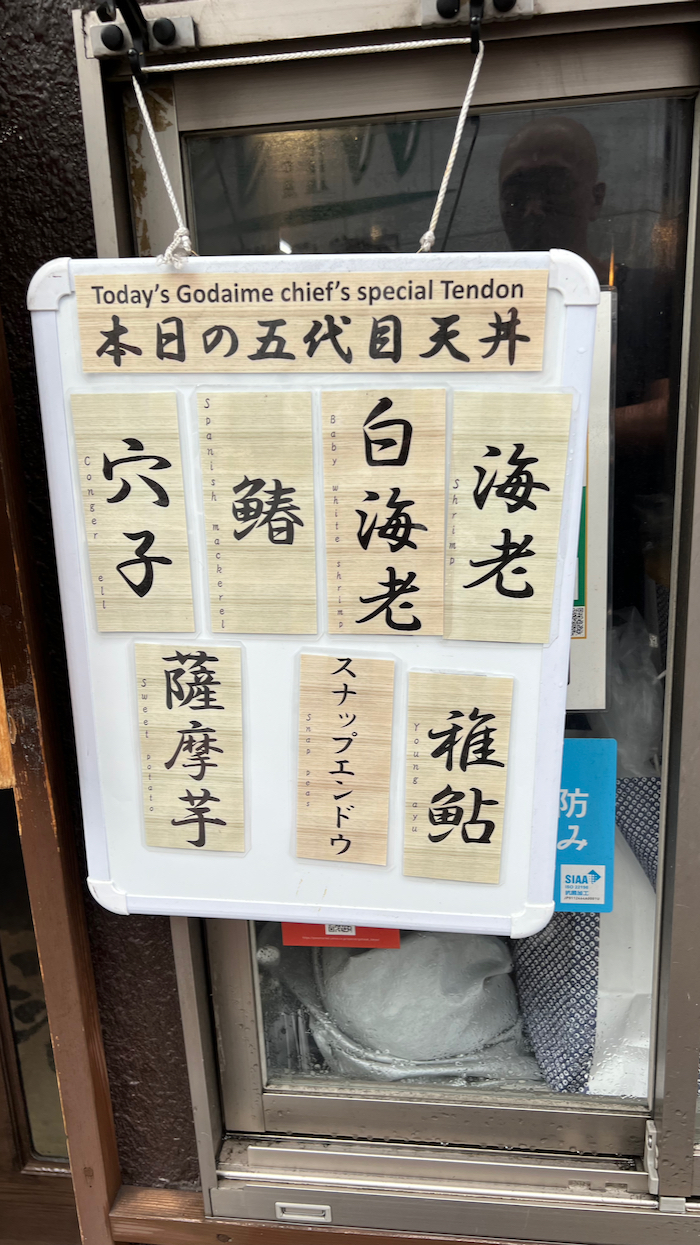 Today's Godaime chief's special Tendon
本日の五代目天丼
海老
Shrimp
白海老
Baby white shrimp
鰆
Spanish mackerel
穴子
Conger ell
稚鮎
Young ayu
スナップエンドウ
Snap peas
薩摩芋
Sweet potato
防
み
SIAA
ISO 22196
抗菌加工